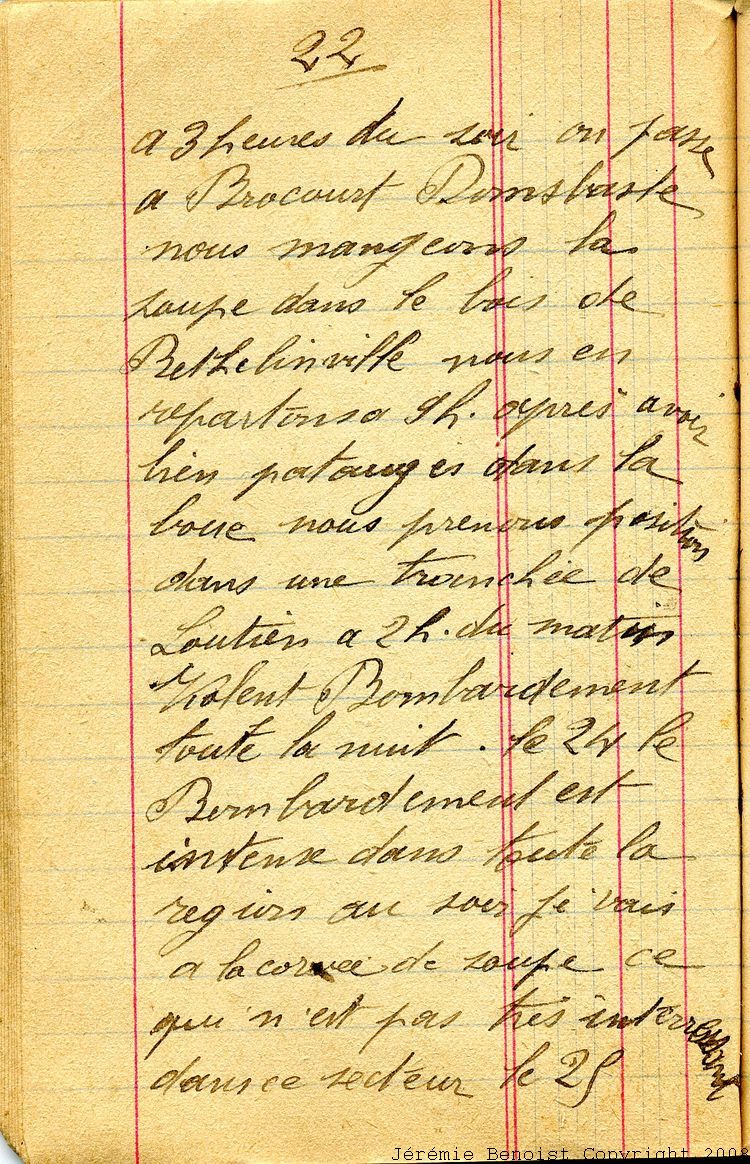 22
a 3 heures du soir on passe
a Brocourt Domsbasle
nous mangeons la
soupe dans le bois de
Bethelinville nous en
repartons a 9h. après avoir
bien patauges dans la
boue nous prenons position
dans une tranchée de
Soutien a 2h. du matin
Violent Bombardement
toute la nuit. le 24 le
Bombardement est
intense dans toute la
region au soir je vais
a la corvée de soupe ce
qui n'est pas très interressant
dans ce secteur le 25
Jérémie Benoist Copyright